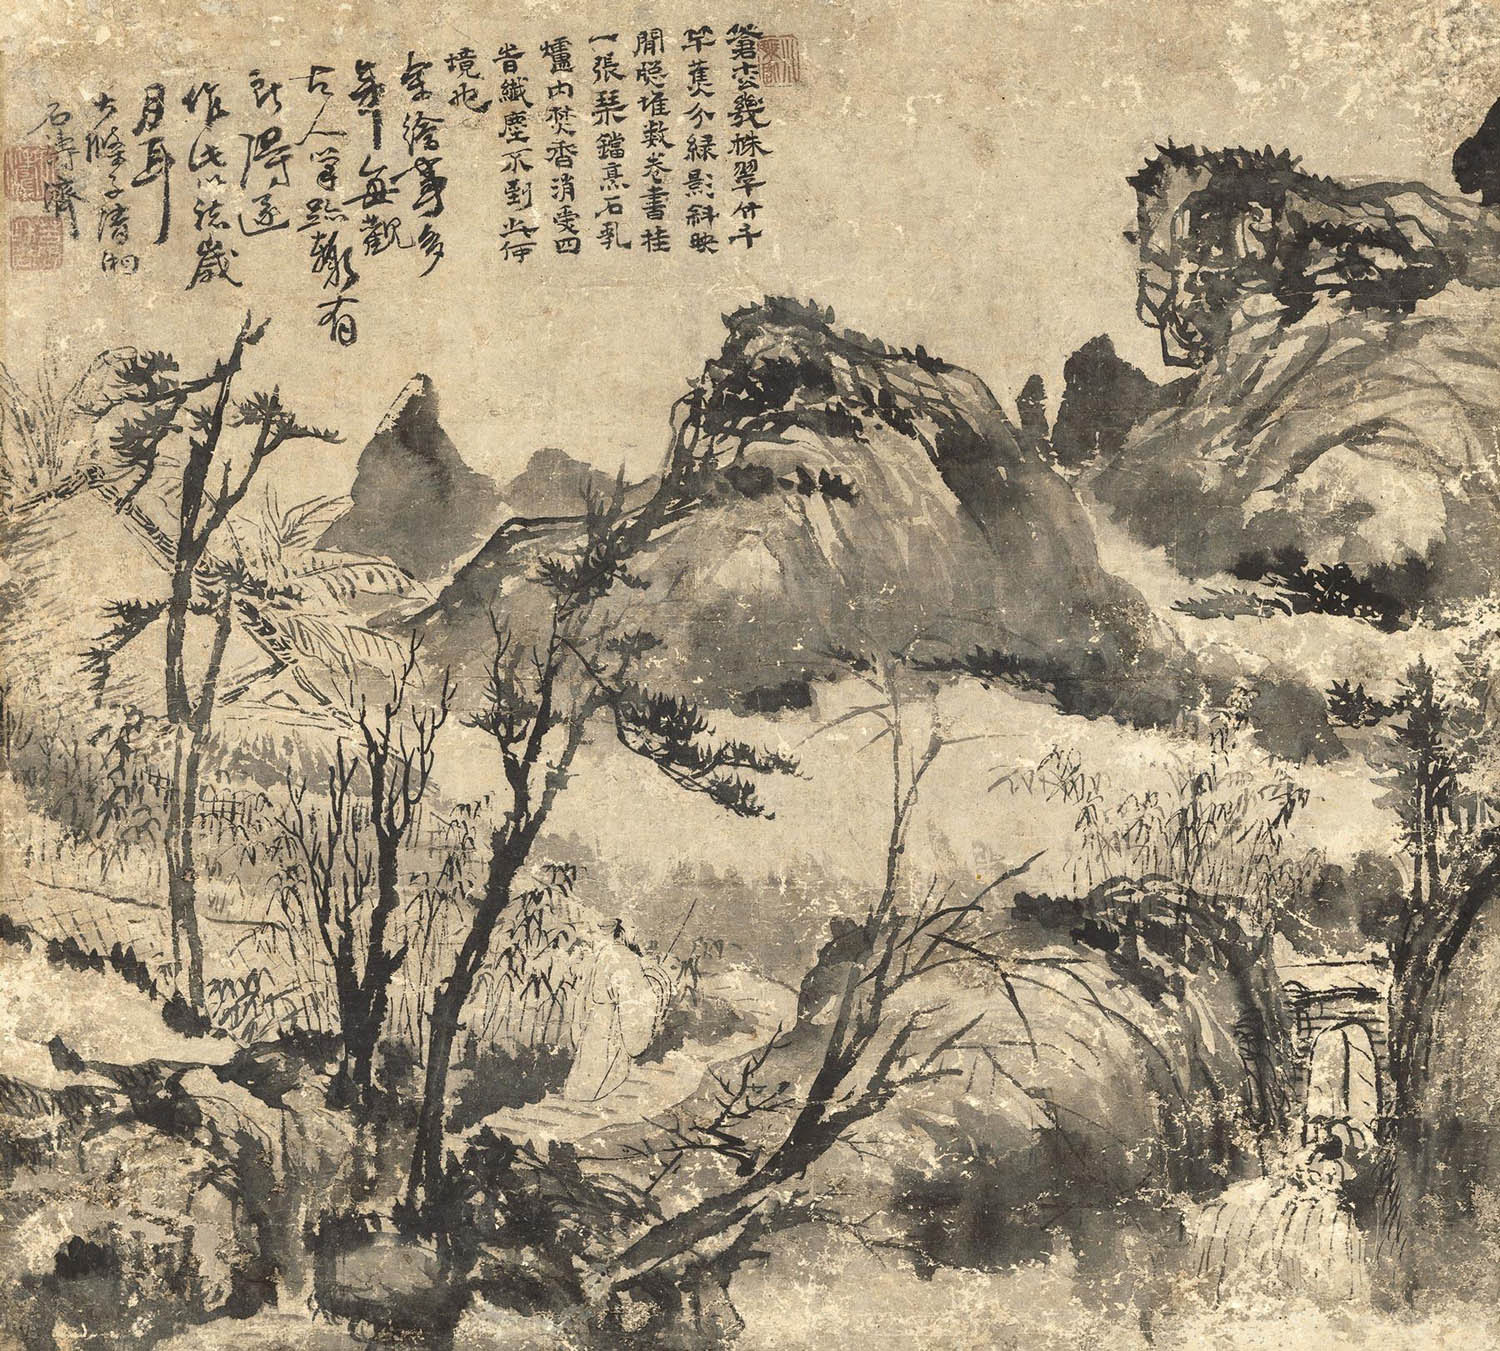 蒼松幾株翠竹千
竿蕉分綠影斜映
閒牕堆數卷書挂
一張琴鐺烹石乳
爐内焚香消受四
旹纖塵不到此何
境也
余繪事多
年每觀
古人筆跡輙有
所得遂
作此以誌歲
月耳
大滌子清湘
石濤濟